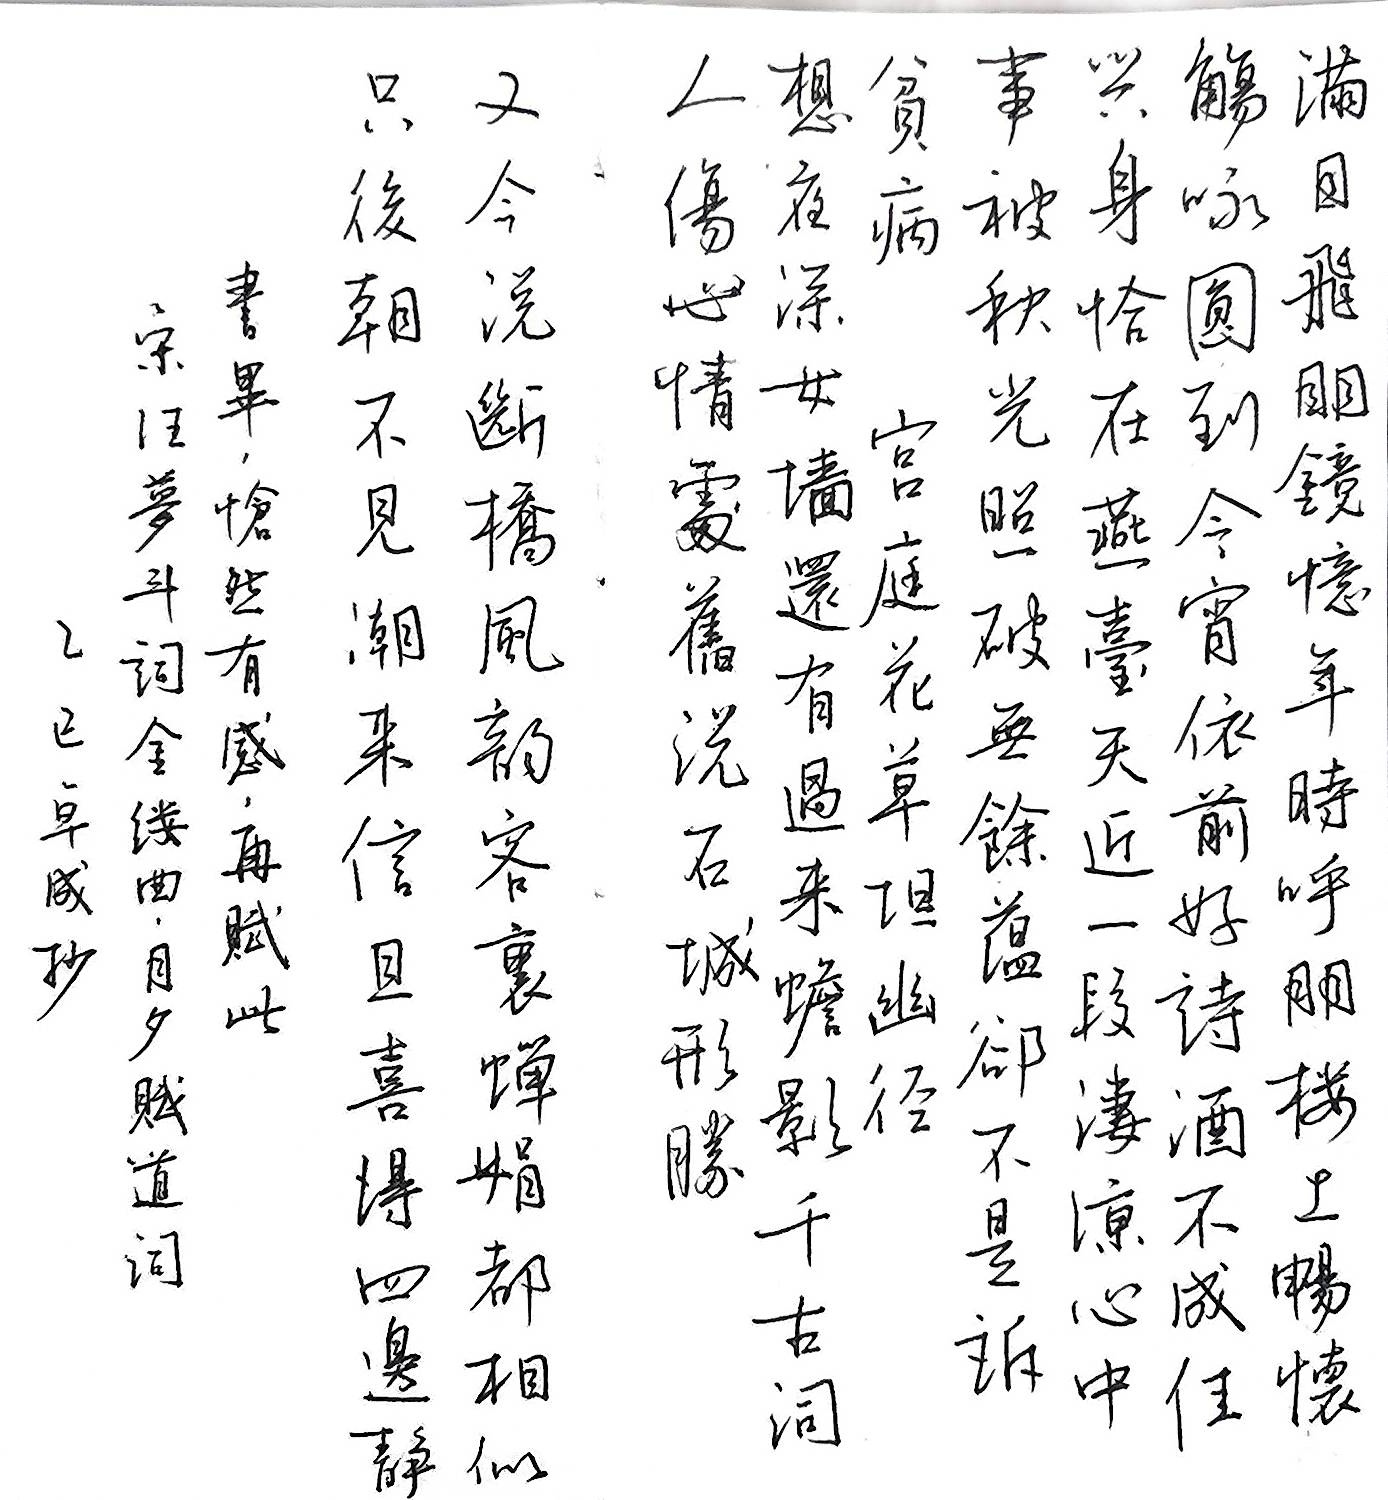 滿目飛眀鏡憶年時呼朋楼上暢懷
觴咏圓到今宵依前好詩酒不成佳
兴身恰在燕臺天近一段淒涼心中
事被秋光照破無餘蕴卻不是訴
貧病　宮庭花草坦幽径
想夜深女墙還有過来蟾影千古词
人傷心情處舊说石城形勝
又今说斷橋風韵客裏蟬娟都相似
只後朝不見潮来信且喜得四邊静
書畢，愴然有感，再賦此
宋汪夢斗詞金缕曲，月夕賦道词
乙巳卓成抄